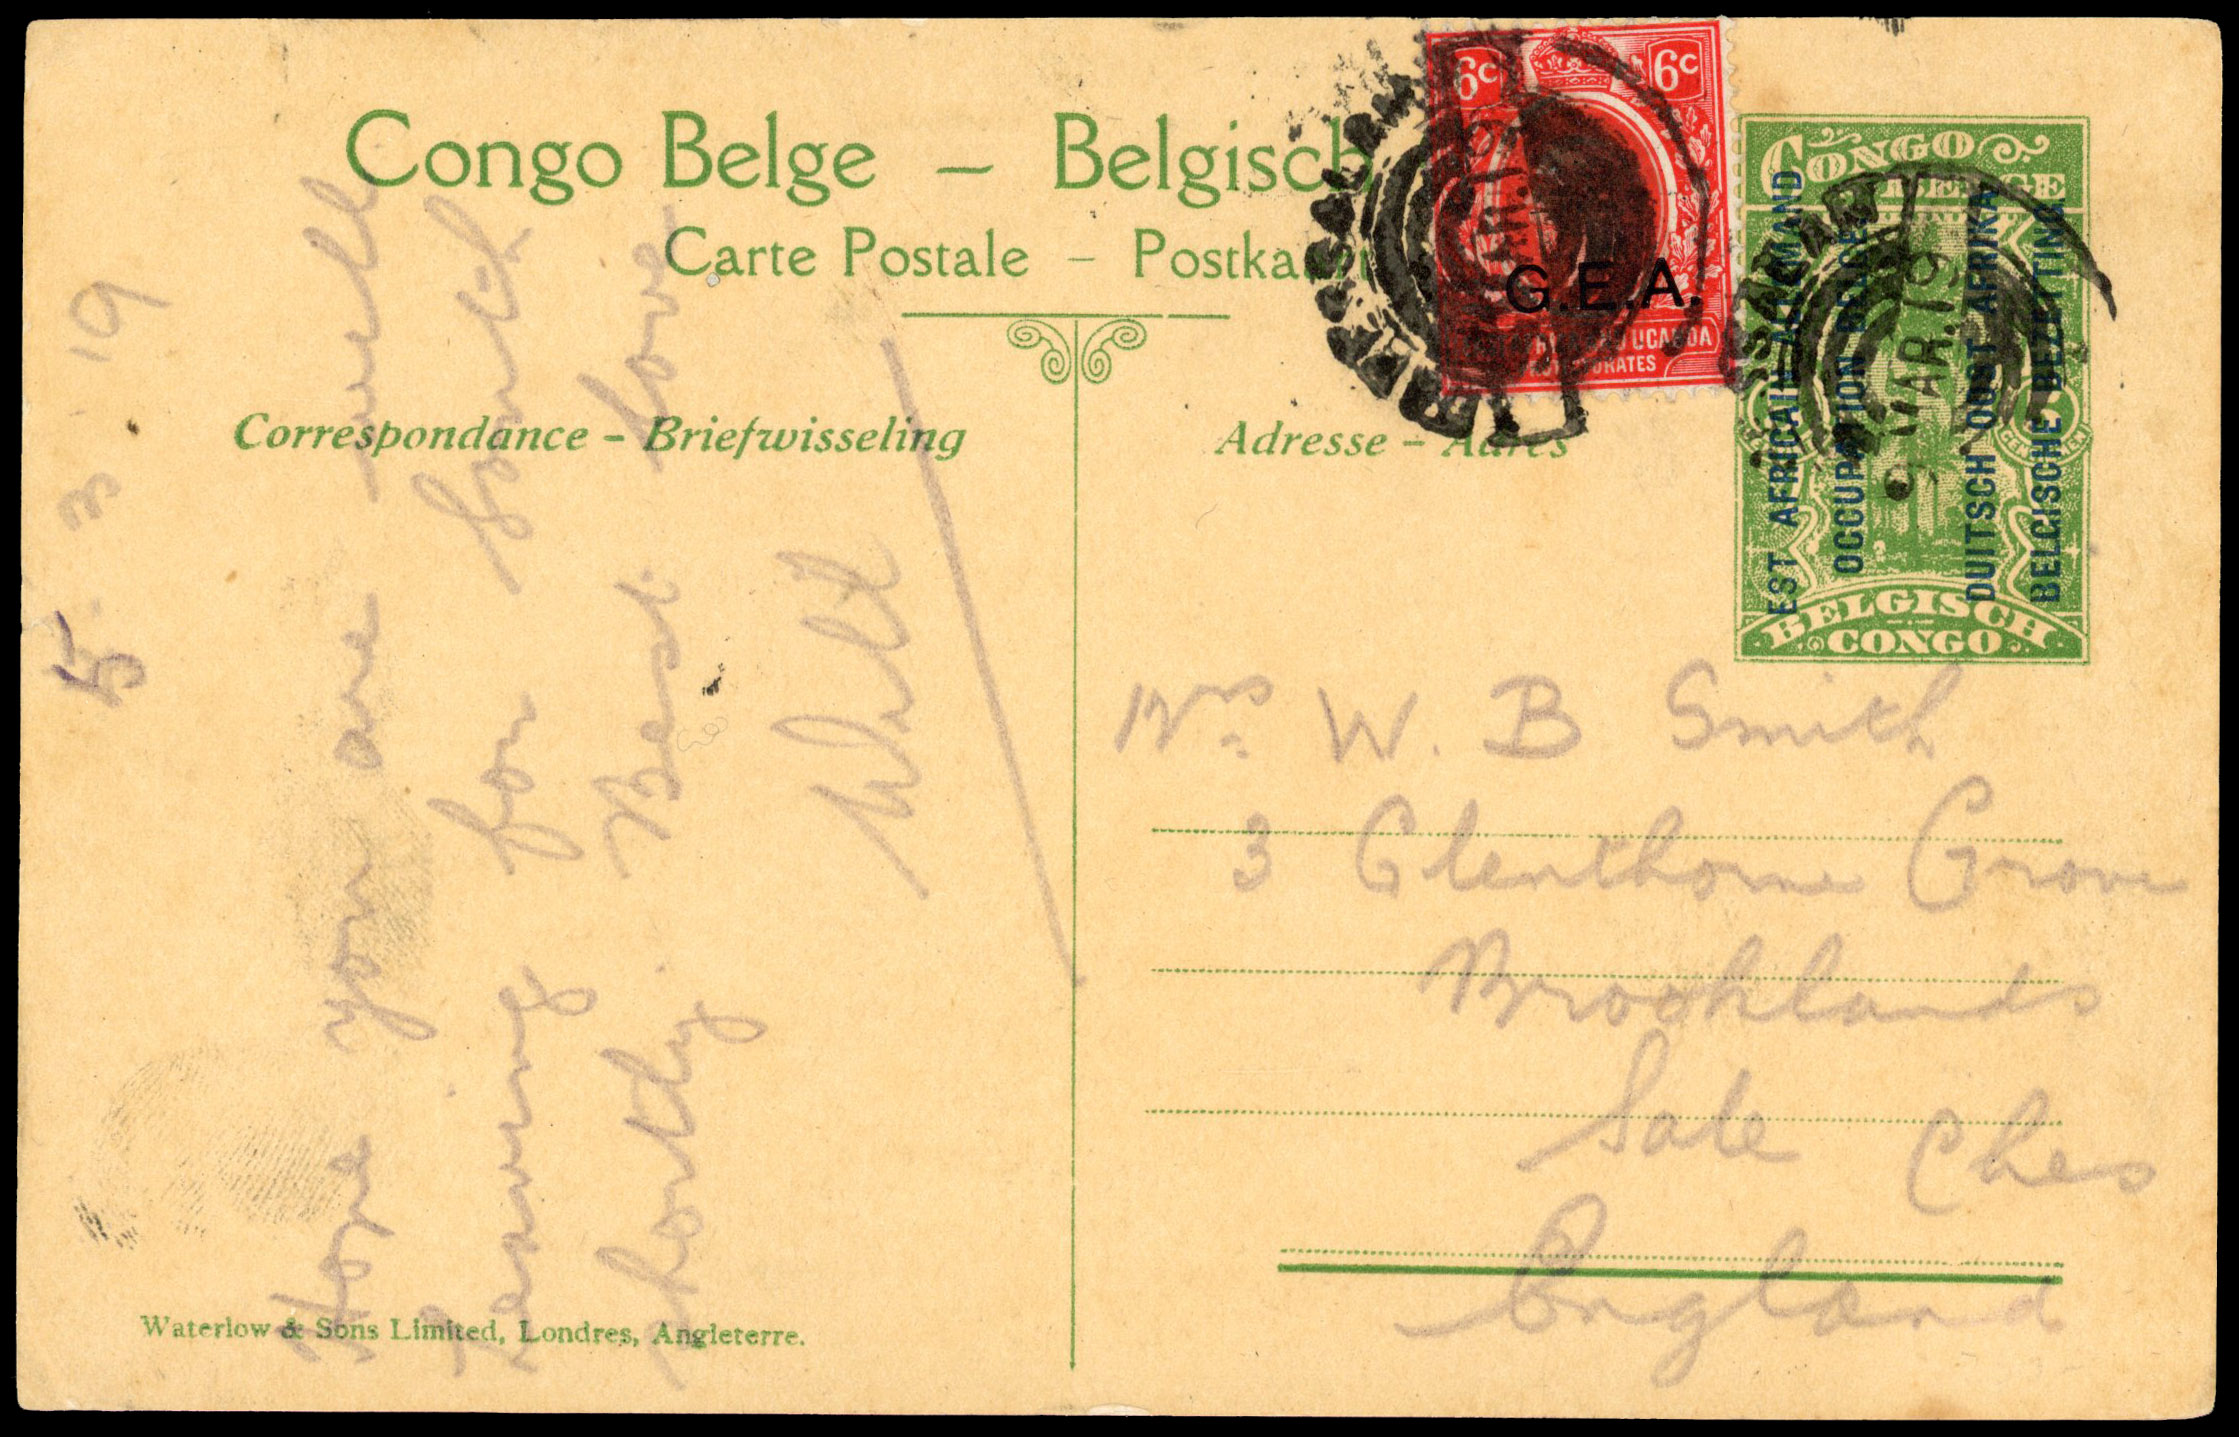 Congo Belge – Belgisch
Carte Postale – Postkaart
Correspondance – Briefwisseling
Adresse – Adres
6c 6c
G.E.A.
UGANDA
CONGO
BELGE
EST AFRICAIN ALLEMAND
OCCUPATION BELGE
DUITSCH OOST AFRIKA
BELGISCHE BEZETTING.
BELGISCH
CONGO
9 MAR. 19
5. 3. 19
Hope you are well
Leaving for South
shortly. Best love
Will
Mrs W. B Smith
3 Glenthorne Grove
Brooklands
Sale Ches
England
Waterlow & Sons Limited, Londres, Angleterre.